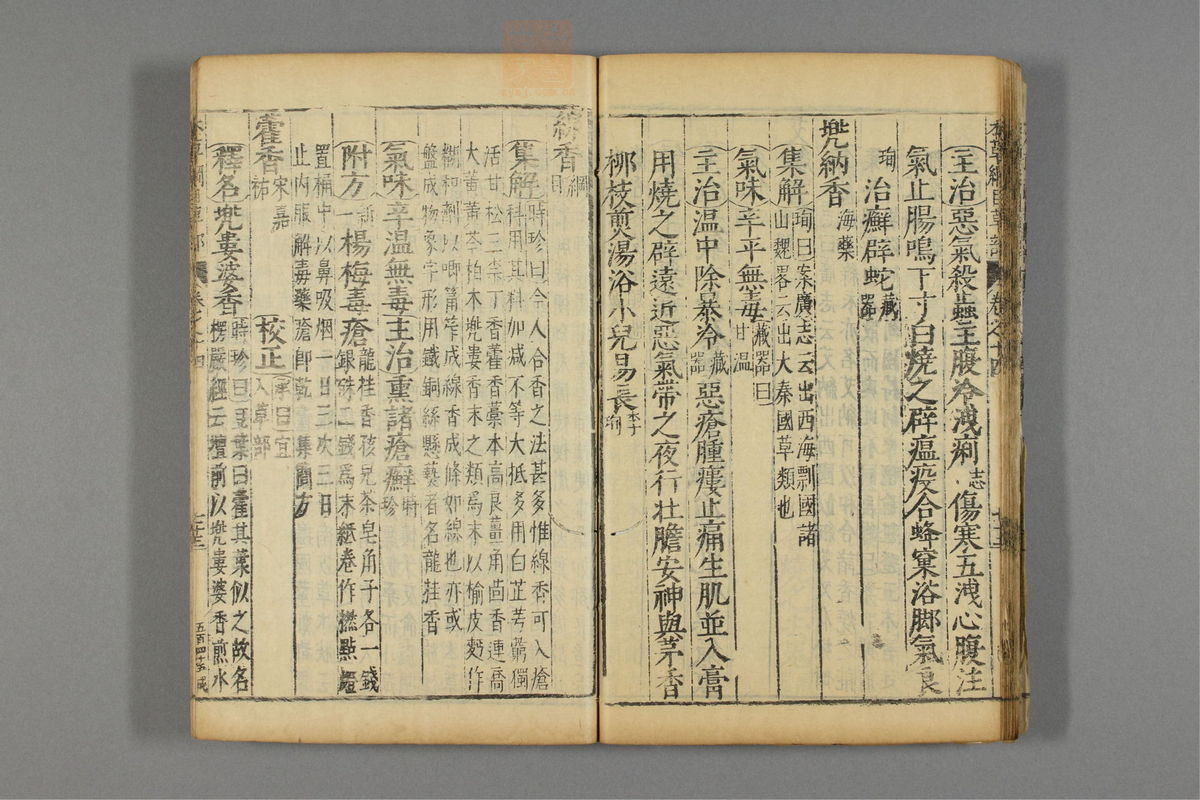 主治惡氣殺蟲主腹冷洩痢志傷寒五洩心腹注
氣止腸鳴下寸白燒之辟瘟疫合蜂窠浴脚氣良
珣治癬辟蛇藏器
兠納香海藥
集解珣曰案廣志云出西海剽國諸
山魏畧云出大秦國草類也
氣味辛平無毒藏器曰
甘温
主治温中除暴冷藏器惡瘡腫瘻止痛生肌並入膏
用燒之辟遠近惡氣帶之夜行壯膽安神與茅香
桞枝煎湯浴小兒易長李珣
線香綱目
集解時珍曰今人合香之法甚多惟線香可入瘡
科用其料加減不等大抵多用白芷芎藭獨
活甘松三柰丁香藿香藁本高良薑角茴香連喬
大黄黄芩柏木兠婁香末之類爲末以榆皮麪作
糊和劑以唧筩笮成線香成條如線也亦或
盤成物象字形用鐵銅絲懸爇者名龍挂香
氣味辛温無毒主治熏諸瘡癬時珍
附方新一楊梅毒瘡龍挂香孩兒茶皂角子各一錢
銀硃二錢爲末紙卷作撚點燈
置桶中以鼻吸烟一日三次三日
止内服解毒藥瘡卽乾集簡方
藿香宋嘉祐
校正承曰宜
入草部
釋名兠婁婆香時珍曰豆葉曰藿其葉似之故名
楞嚴經云壇前以兠婁婆香煎水
本草綱目草部
卷之十四